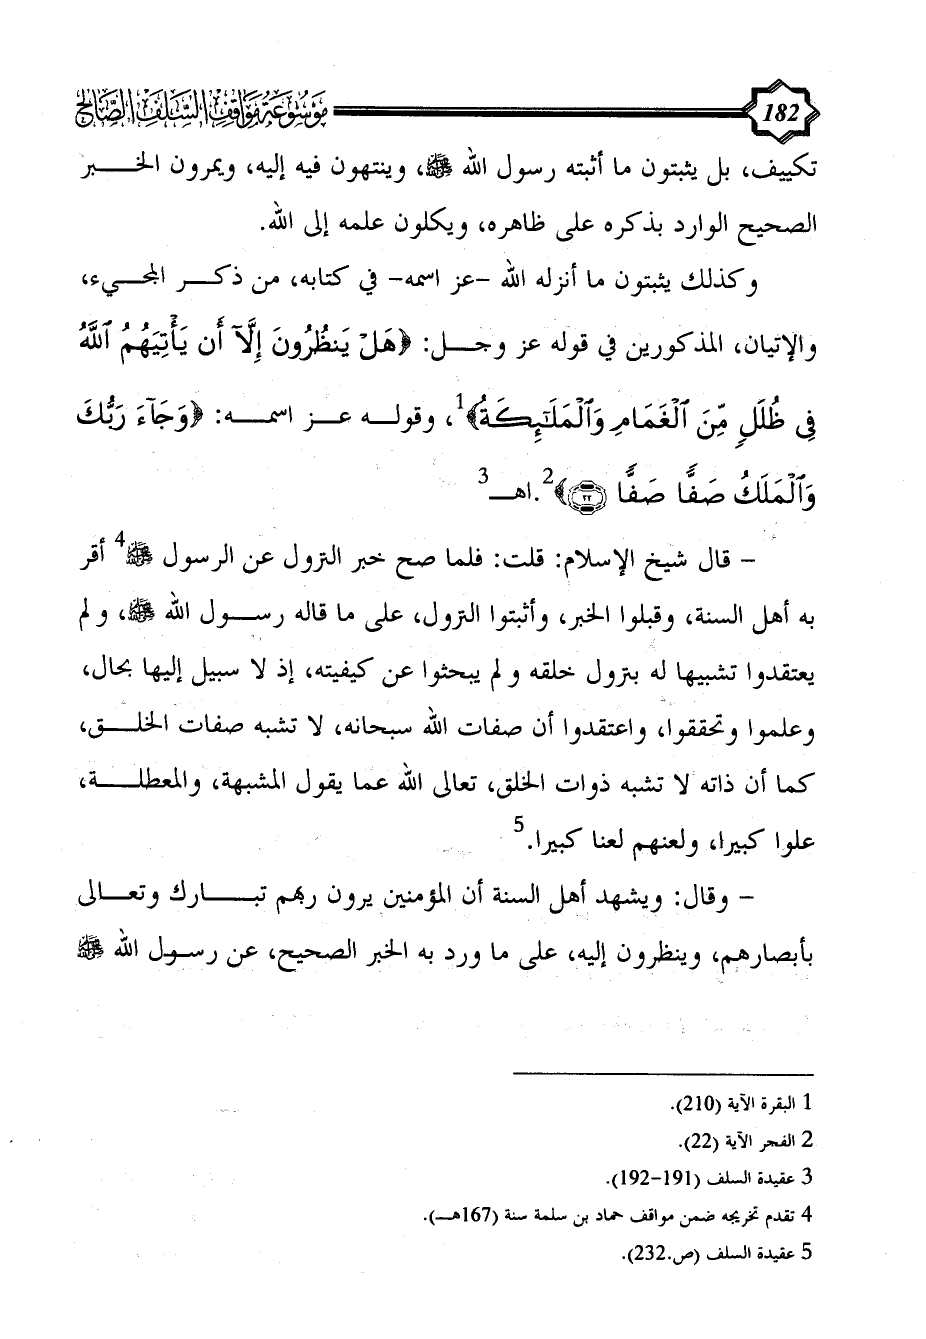 182 موسوعة مواقف السلف الصالح
تكييف، بل يثبتون ما أثبته رسول الله ﷺ، وينتهون فيه إليه، ويمرون الخبر
الصحيح الوارد بذكره على ظاهره، ويكلون علمه إلى الله.
وكذلك يثبتون ما أنزله الله -عز اسمه- في كتابه، من ذكر المجيء،
والإتيان، المذكورين في قوله عز وجل: ﴿هَلْ يَنظُرُونَ إِلَّآ أَن يَأْتِيَهُمُ ٱللَّهُ
فِي ظُلَلٍ مِّنَ ٱلْغَمَامِ وَٱلْمَلَٰٓئِكَةُ﴾1، وقوله عز اسمه: ﴿وَجَآءَ رَبُّكَ
وَٱلْمَلَكُ صَفًّا صَفًّا ٢٢﴾2.اهـ3
- قال شيخ الإسلام: قلت: فلما صح خبر النزول عن الرسول ﷺ4 أقر
به أهل السنة، وقبلوا الخبر، وأثبتوا النزول، على ما قاله رسول الله ﷺ، ولم
يعتقدوا تشبيها له بنزول خلقه ولم يبحثوا عن كيفيته، إذ لا سبيل إليها بحال،
وعلموا وتحققوا، واعتقدوا أن صفات الله سبحانه، لا تشبه صفات الخلق،
كما أن ذاته لا تشبه ذوات الخلق، تعالى الله عما يقول المشبهة، والمعطلة،
علوا كبيرا، ولعنهم لعنا كبيرا.5
- وقال: ويشهد أهل السنة أن المؤمنين يرون ربهم تبارك وتعالى
بأبصارهم، وينظرون إليه، على ما ورد به الخبر الصحيح، عن رسول الله ﷺ
1 البقرة الآية (210).
2 الفجر الآية (22).
3 عقيدة السلف (191-192).
4 تقدم تخريجه ضمن مواقف حماد بن سلمة سنة (167هـ).
5 عقيدة السلف (ص.232).